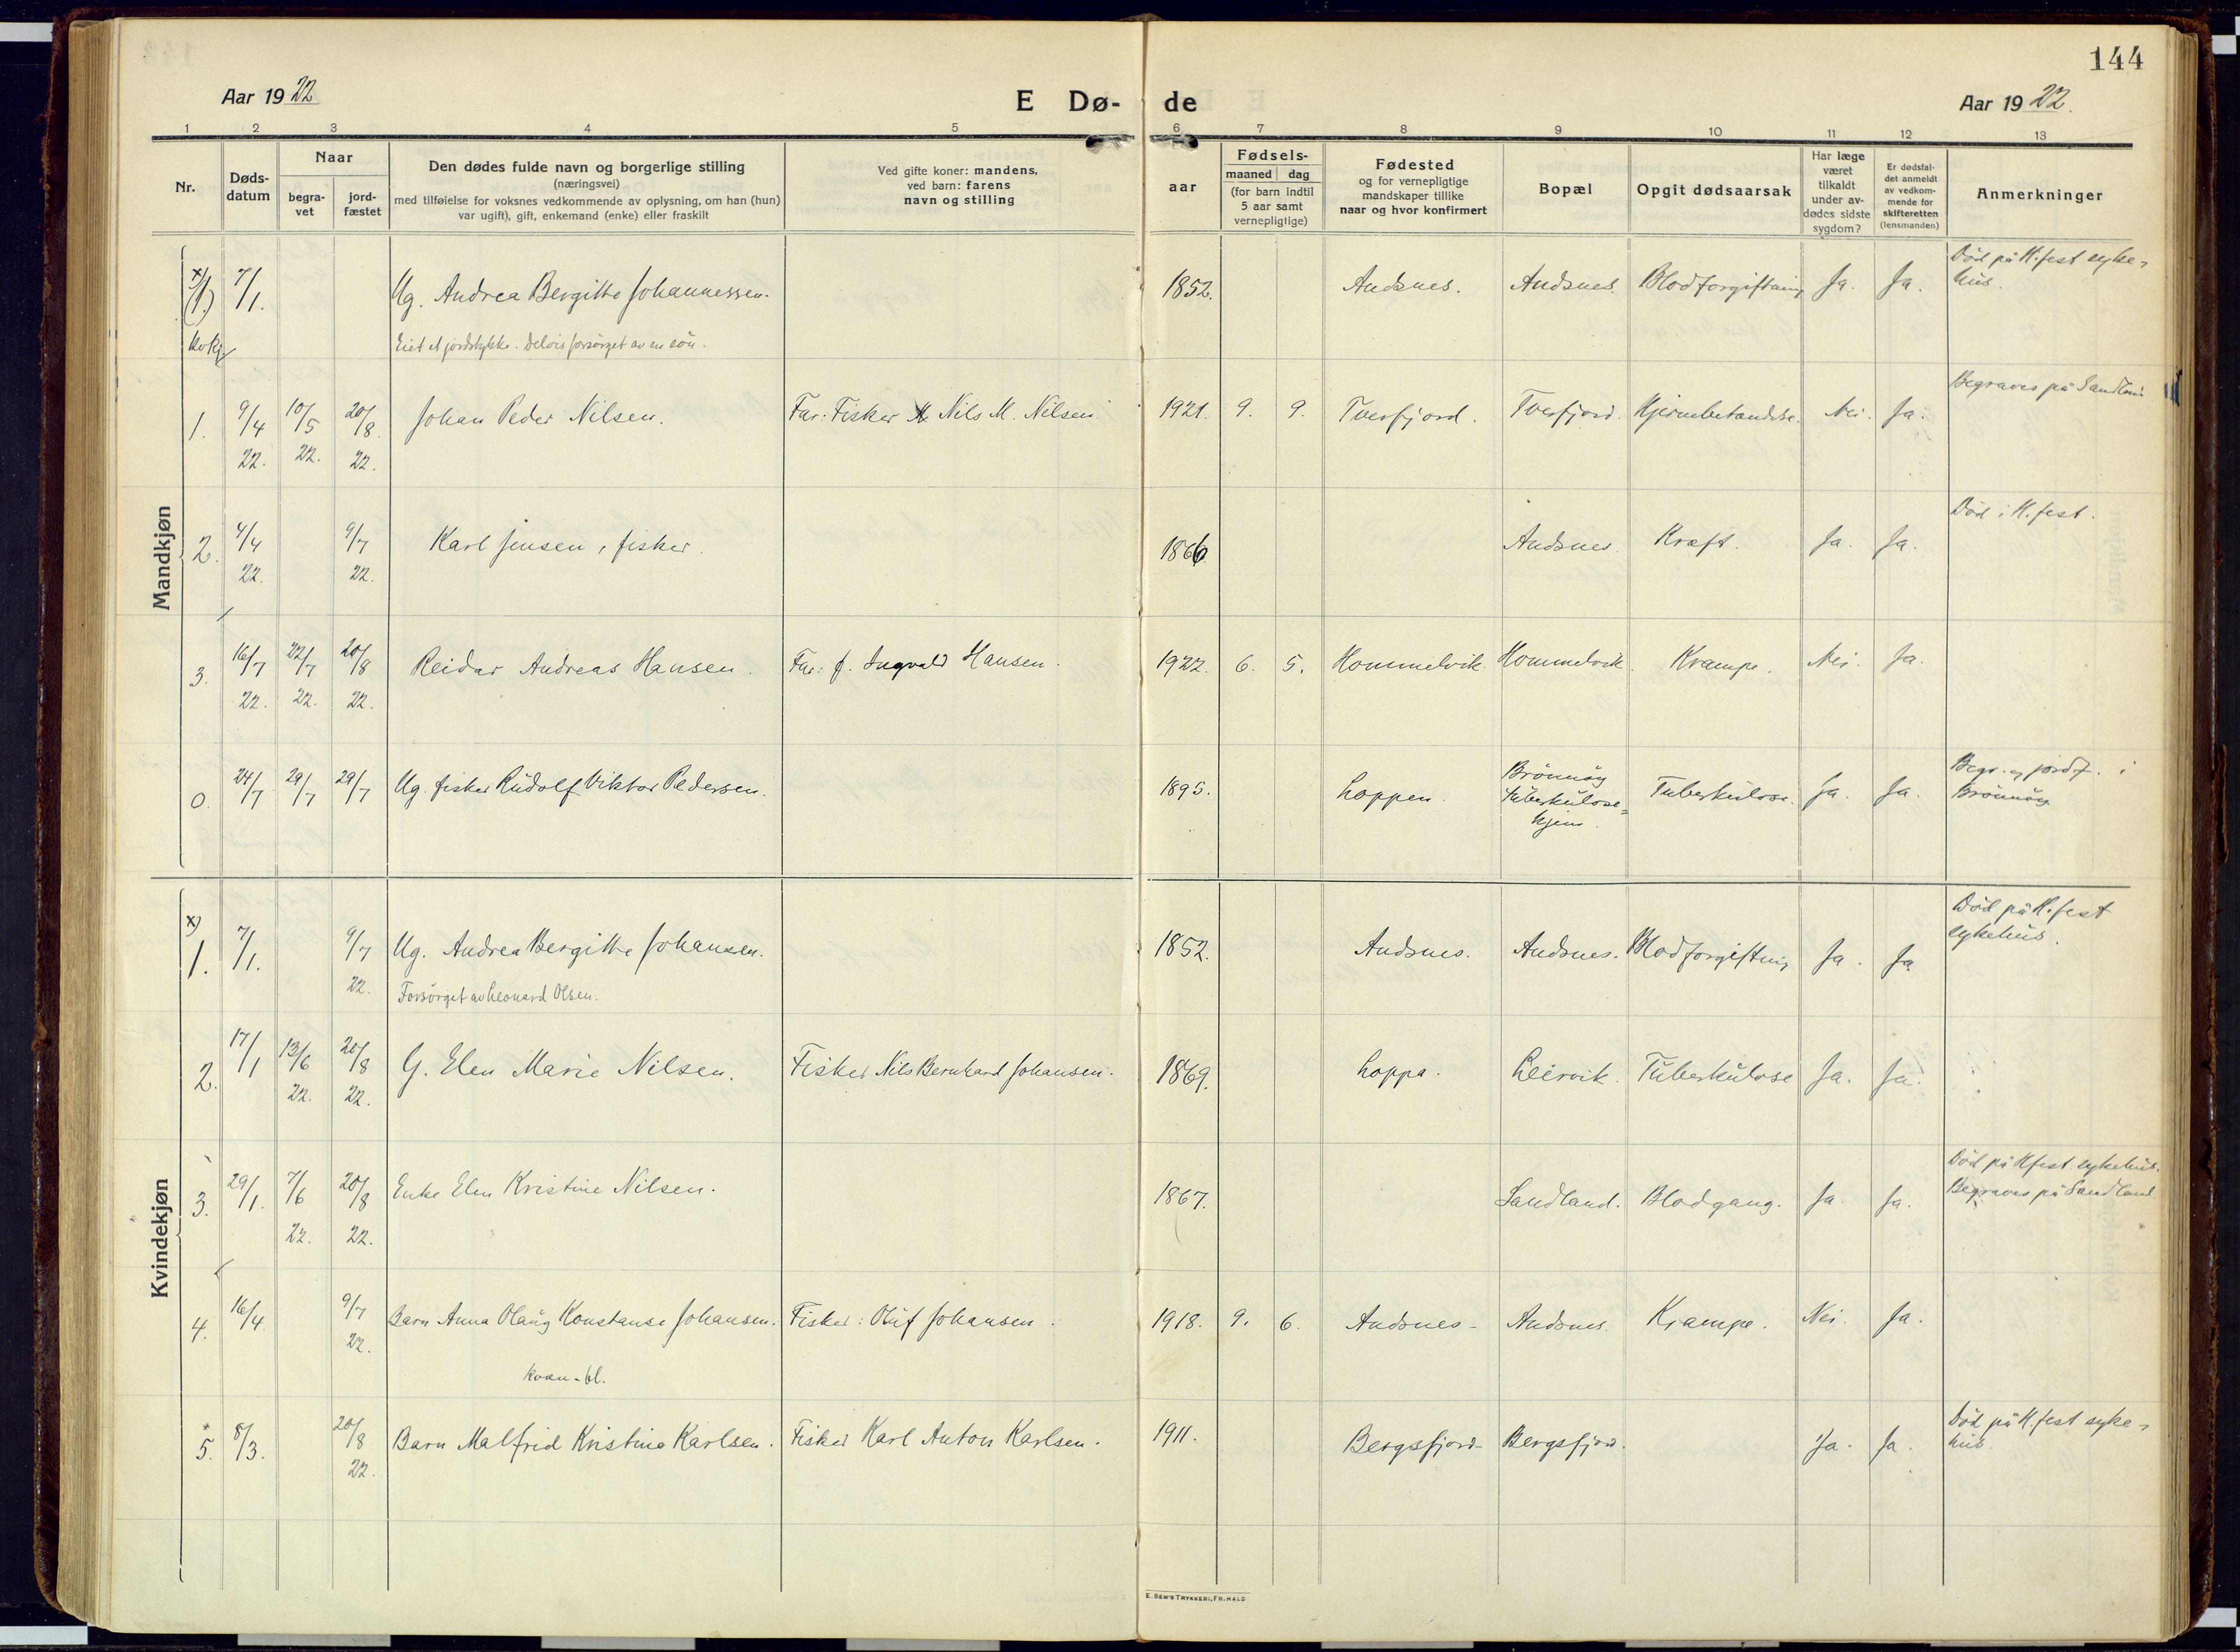 144
Aar 1922
E Dø- de
Aar 1922.
1 2 3 4 5 6 7 8 9 10 11 12 13
Nr.
Døds-
datum
Naar
begra-
vet
jord-
fæstet
Den dødes fulde navn og borgerlige stilling
(næringsvei)
med tilføielse for voksnes vedkommende av oplysning, om han (hun)
var ugift), gift, enkemand (enke) eller fraskilt
Ved gifte koner: mandens,
ved barn: farens
navn og stilling
aar
Fødsels-
maaned dag
(for barn indtil
5 aar samt
vernepligtige)
Fødested
og for vernepligtige
mandskaper tillike
naar og hvor konfirmert
Bopæl
Opgit dødsaarsak
Har læge
været
tilkaldt
under av-
dødes sidste
sygdom?
Er dødsfal-
det anmeldt
av vedkom-
mende for
skifteretten
(lensmanden)
Anmerkninger
Mandkjøn
x) (1.) 7/1. Ug. Andrea Bergitte Johannessen. 1852. Andsnes. Andsnes. Blodforgiftning Ja. Ja. Död på H.fest syke-
hus.
Kvkj Eiet et jordstykke. Delvis forsörget av en sön.
1. 9/4 10/5 20/8. Johan Peder Nilsen. Far: Fisker Nils M. Nilsen 1921. 9. 9. Tverfjord. Tverfjord. Hjernebetændelse. Nei. Ja. Begraves på Sandland
22. 22. 22.
2. 4/4 9/7 Karl Jensen, fisker. 1866. Andsnes. Kræft. Ja. Ja. Död i H.fest.
22. 22.
3. 16/7 22/7 20/8 Reidar Andreas Hansen. Far: f. Ingvald Hansen. 1922. 6. 5. Hommelvik. Hommelvik. Krampe. Nei. Ja.
22. 22. 22.
0. 24/7 29/7 29/7 Ug. fisker Rudolf Viktor Pedersen. 1895. Loppen. Brönnöy
Tuberkulose-
hjem. Tuberkulose. Ja. Ja. Begr. og jordf. i
Brönnöy
Kvindekjøn
x) 1. 7/1. 9/7 Ug. Andrea Bergitte Johansen. 1852. Andsnes. Andsnes. Blodforgiftning Ja. Ja Död på H.fest
sykehus.
22. Forsörget av Leonard Olsen.
2. 17/1 13/6 20/8 G. Elen Marie Nilsen. Fisker Nils Bernhard Johansen. 1869. Loppa. Leirvik. Tuberkulose Ja. Ja.
22. 22.
3. 29/1. 7/6 20/8 Enke Elen Kristine Nilsen. 1867. Sandland. Blodgang. Ja. Ja. Död på H.fest sykehus.
Begraves på Sandland.
22. 22.
4. 16/4. 9/7 Barn Anna Olaug Konstanse Johansen. Fisker: Oluf Johansen. 1918. 9. 6. Andsnes- Andsnes. Krampe. Nei. Ja.
22.
kvæn-bl.
5. 8/3. 20/8 Barn Malfrid Kristine Karlsen. Fisker Karl Anton Karlsen. 1911. Bergsfjord- Bergsfjord. Ja. Ja. Död på H.fest syke-
hus.
22.
E. SEM'S TRYKKERI, FR.HALD